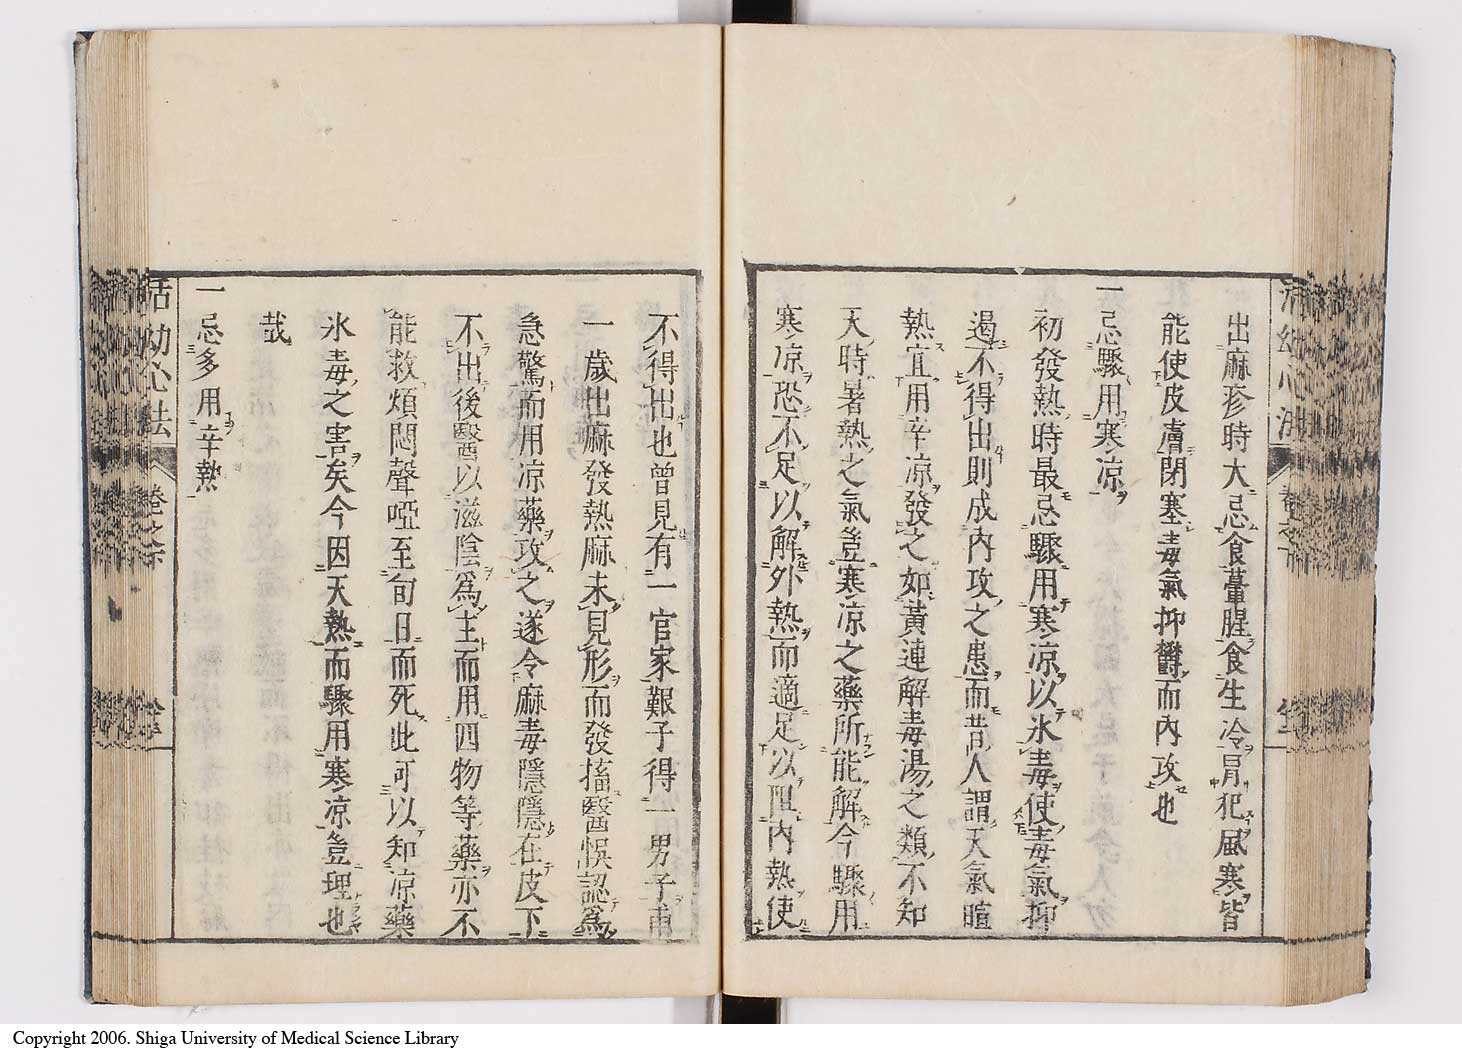 出麻疹時大忌食葷腥食生冷冐犯風寒皆
能使皮膚閉塞毒氣抑鬱而內攻也
一忌驟用寒涼
初發熱時最忌驟用寒凉以氷毒使毒氣抑
遏不得出則成內攻之患而昔人謂天氣暄
熱宜用辛凉發之如黃連解毒湯之類不知
天時暑熱之氣豈寒凉之藥所能解今驟用
寒凉恐不足以解外熱而適足以阻內熱使
不得出也曾見有一官家艱子得一男子甫
一歲出麻發熱麻未見形而發搐醫悞認爲
急驚而用凉藥攻之遂令麻毒隱隱在皮下
不出後醫以滋陰爲主而用四物等藥亦不
能救煩悶聲啞至旬日而死此可以知凉藥
氷毒之害矣今因天熱而驟用寒凉豈理也
哉
一忌多用辛熱
活幼心法
卷之六
Copyright 2006. Shiga University of Medical Science Library